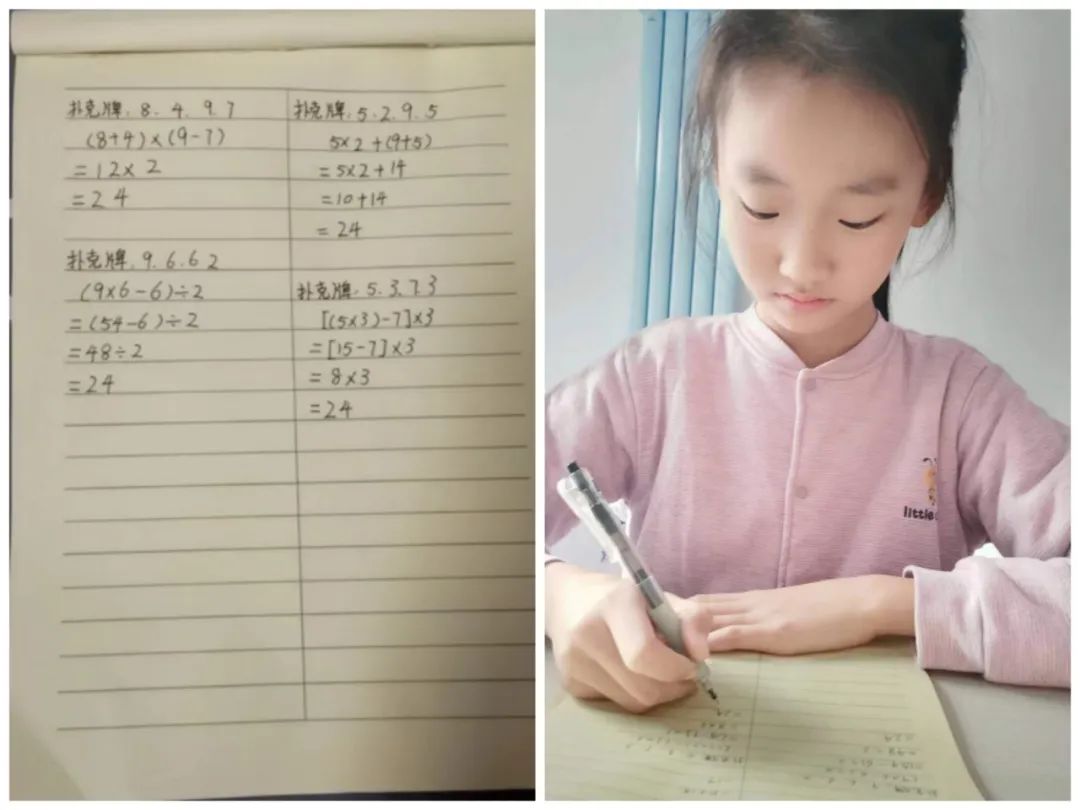 扑克牌:8.4.9.7
(8+4)×(9-7)
=12×2
=24
扑克牌:9.6.6 2
(9×6-6)÷2
=(54-6)÷2
=48÷2
=24
扑克牌:5.2.9.5
5×2+(9+5)
=5×2+14
=10+14
=24
扑克牌:5.3.7.3
[(5×3)-7]×3
=[15-7]×3
=8×3
=24
little